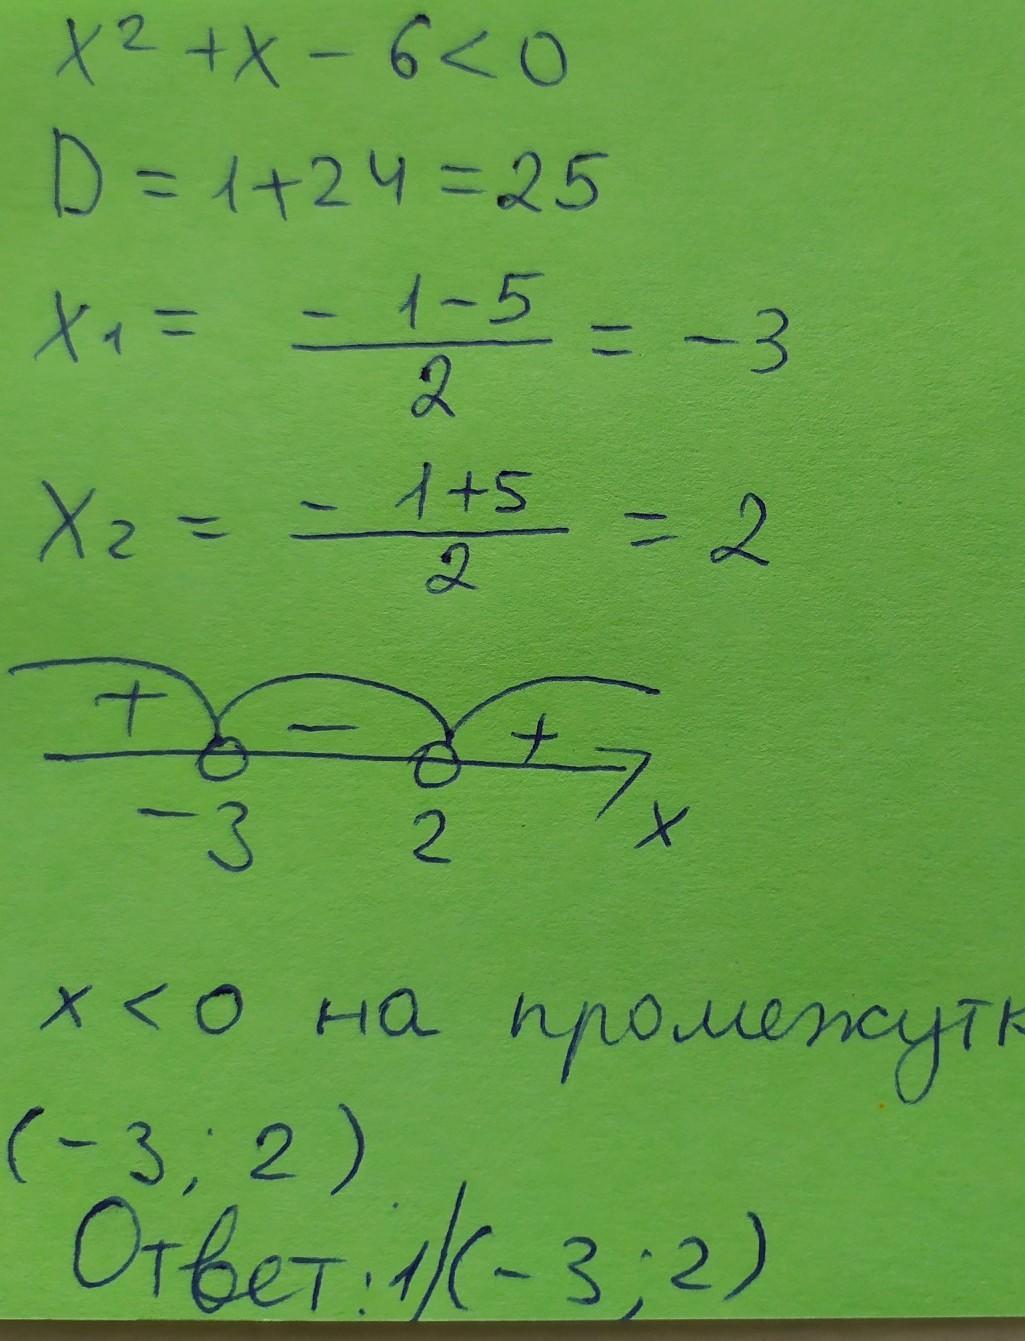 x² + x - 6 < 0
D = 1 + 24 = 25
x₁ = (-1-5)/2 = -3
x₂ = (-1+5)/2 = 2
+ - +
-3 2 x
x < 0 на промежутк
(-3; 2)
Ответ: 1) (-3; 2)